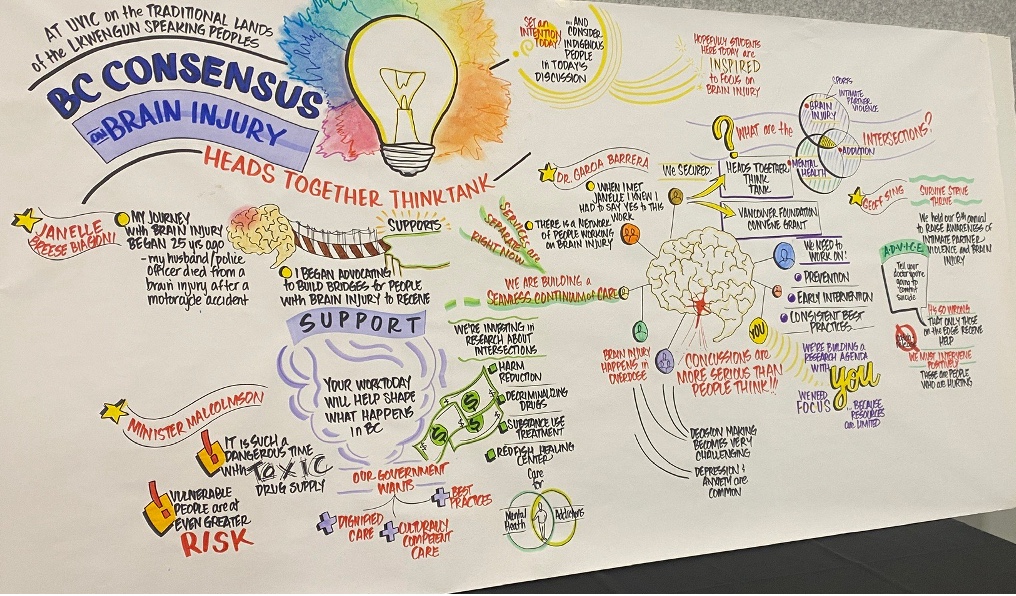 AT UVIC on the TRADITIONAL LANDS
of the LKWENGUN SPEAKING PEOPLES
BC CONSENSUS
on BRAIN INJURY
HEADS TOGETHER THINK TANK
SET an
INTENTION
TODAY
... AND
CONSIDER
INDIGENOUS
PEOPLE
in TODAY'S
DISCUSSION
HOPEFULLY STUDENTS
HERE TODAY are
INSPIRED
to FOCUS on
BRAIN INJURY
JANELLE
BREESE BIAGIONI
MY JOURNEY
with BRAIN INJURY
BEGAN 25 yrs ago
- my husband/police
officer died from a
brain injury after a
motorcycle accident
SUPPORTS
I BEGAN ADVOCATING
to BUILD BRIDGES for PEOPLE
with BRAIN INJURY to RECEIVE
SUPPORT
YOUR WORK TODAY
WILL HELP SHAPE
WHAT HAPPENS
in BC
MINISTER MALCOLMSON
IT IS SUCH a
DANGEROUS TIME
with TOXIC
DRUG SUPPLY
VULNERABLE
PEOPLE are at
EVEN GREATER
RISK
OUR GOVERNMENT
WANTS
DIGNIFIED
CARE
CULTURALLY
COMPETENT
CARE
BEST
PRACTICES
SERVICES are
SEPARATED
RIGHT NOW
WE ARE BUILDING a
SEAMLESS CONTINUUM of CARE
WE'RE INVESTING in
RESEARCH ABOUT
INTERSECTIONS
HARM
REDUCTION
DECRIMINALIZING
DRUGS
SUBSTANCE USE
TREATMENT
RED FISH HEALING
CENTER
Care
for
Mental
Health
Addictions
DR. GARCIA BARRERA
WHEN I MET
JANELLE I KNEW I
HAD to SAY YES to THIS
WORK
THERE IS a NETWORK
of PEOPLE WORKING
on BRAIN INJURY
WE SECURED:
HEADS TOGETHER
THINK
TANK
VANCOUVER FOUNDATION
CONVENE GRANT
? WHAT are the
INTERSECTIONS?
SPORTS
INTIMATE
PARTNER
VIOLENCE
BRAIN
INJURY
ADDICTION
MENTAL
HEALTH
WE NEED to
WORK ON:
PREVENTION
EARLY INTERVENTION
CONSISTENT BEST
PRACTICES
YOU
WE'RE BUILDING a
RESEARCH AGENDA
WITH
you
WE NEED
FOCUS
... BECAUSE
RESOURCES
are LIMITED
BRAIN INJURY
HAPPENS in
OVERDOSE
CONCUSSIONS are
MORE SERIOUS THAN
PEOPLE THINK!!
DECISION MAKING
BECOMES VERY
CHALLENGING
DEPRESSION &
ANXIETY are
COMMON
GEOFF SING
SURVIVE STRIVE
THRIVE
We held our 8th annual
to RAISE AWARENESS of
INTIMATE PARTNER
VIOLENCE and BRAIN
INJURY
ADVICE
Tell your
doctor you're
going to
commit
suicide
IT'S SO WRONG
THAT ONLY THOSE
on the EDGE RECEIVE
HELP
WE MUST INTERVENE
POSITIVELY
THESE are PEOPLE
WHO are HURTING